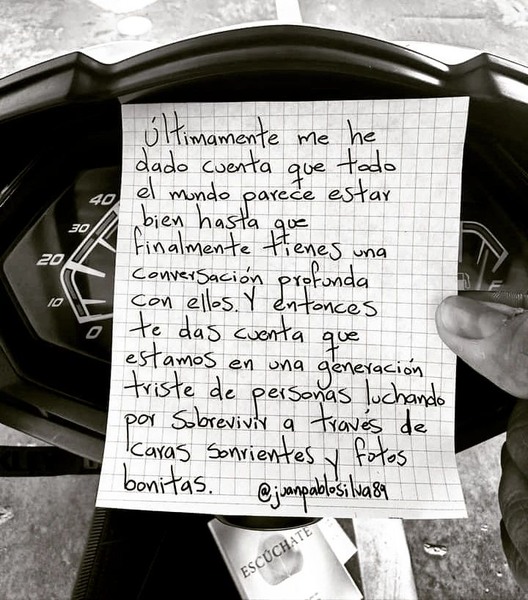 Últimamente me he
dado cuenta que todo
el mundo parece estar
bien hasta que
finalmente tienes una
conversación profunda
con ellos. Y entonces
te das cuenta que
estamos en una generación
triste de personas luchando
por sobrevivir a través de
caras sonrientes y fotos
bonitas. @juanpablosilva89
40
30
20
10
0
F
ESCÚCHATE